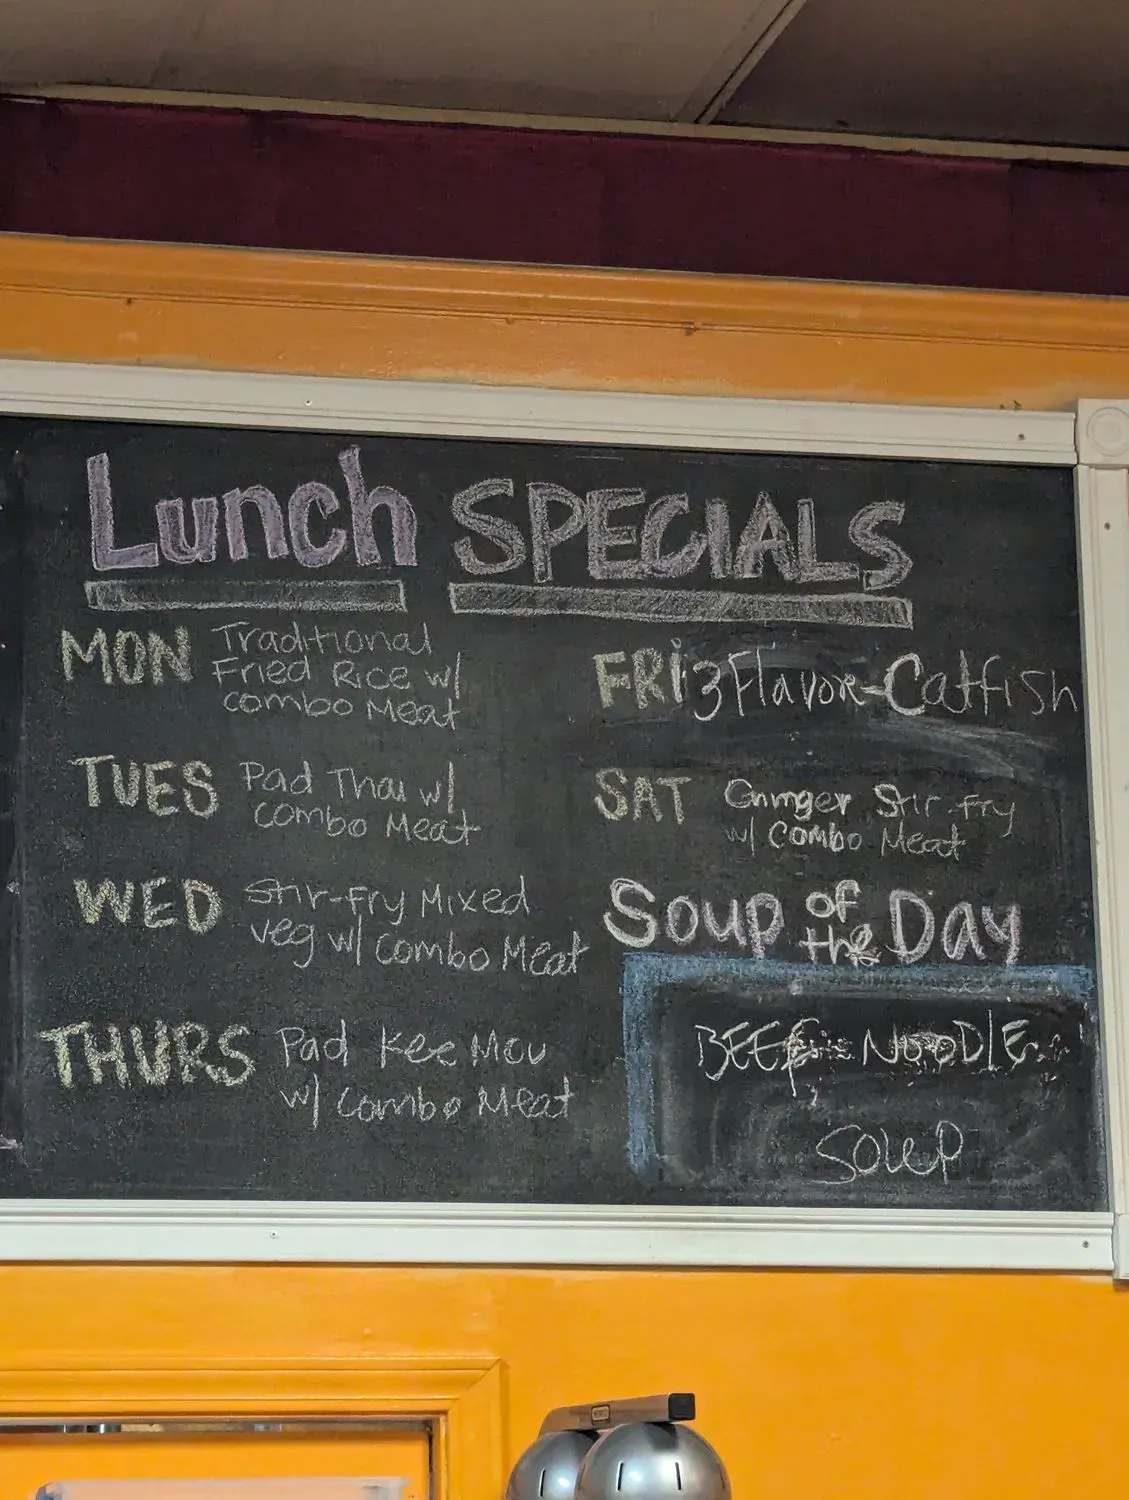 Lunch SPECIALS
MON Traditional
Fried Rice w/
combo Meat
TUES Pad Thai w/
combo Meat
WED Stir-fry Mixed
veg w/ combo Meat
THURS Pad Kee Mou
w/ combo Meat
FRI 3 Flavor-Catfish
SAT Ginger Stir-fry
w/ combo Meat
Soup of the Day
BEEF NOODLE
SOUP